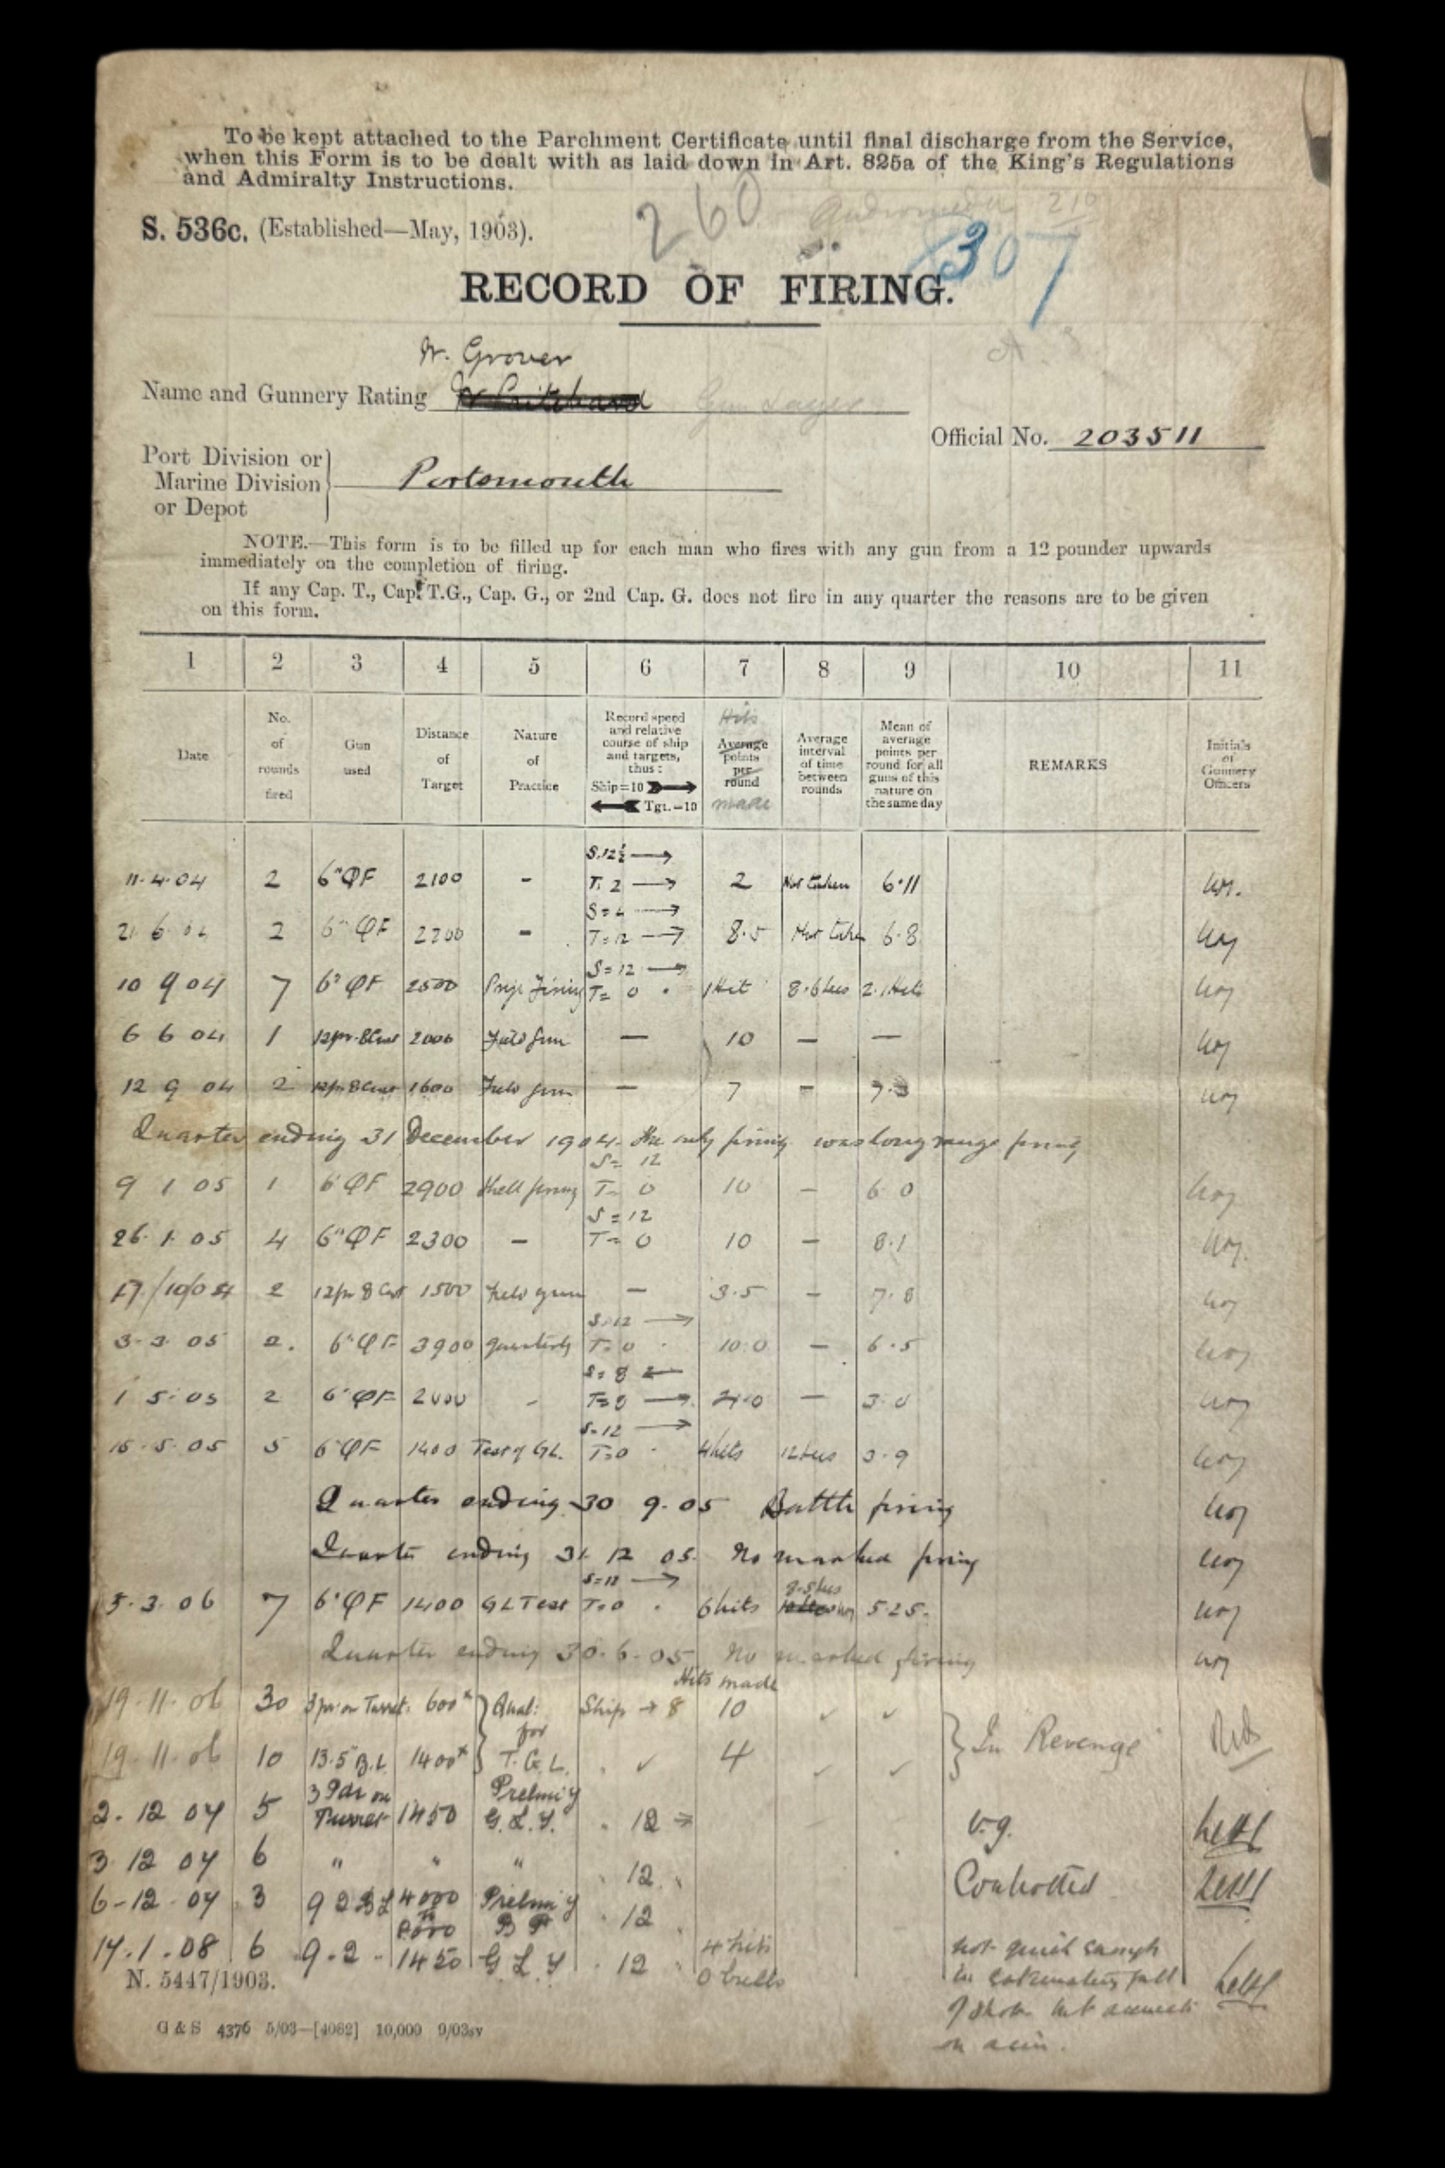 To be kept attached to the Parchment Certificate until final discharge from the Service,
when this Form is to be dealt with as laid down in Art. 825a of the King's Regulations
and Admiralty Instructions.
260 Andromeda 210
S. 536c. (Established—May, 1903).
307
RECORD OF FIRING.
W. Grover
Name and Gunnery Rating W Pritchard Gun Layer
Official No. 203511
Port Division or
Marine Division Portsmouth
or Depot
NOTE.—This form is to be filled up for each man who fires with any gun from a 12 pounder upwards
immediately on the completion of firing.
If any Cap. T., Cap. T.G., Cap. G., or 2nd Cap. G. does not fire in any quarter the reasons are to be given
on this form.
1 2 3 4 5 6 7 8 9 10 11
Date
No. of rounds fired
Gun used
Distance of Target
Nature of Practice
Record speed and relative course of ship and targets, thus: Ship=10 → ← Tgt.=10
Hits Average points per round made
Average interval of time between rounds
Mean of average points per round for all guns of this nature on the same day
REMARKS
Initials of Gunnery Officers
S.12½ →
11.4.04 2 6"QF 2100 - T. 2 → 2 Not taken 6.11
S=4 →
21 6 04 2 6" QF 2200 - T=12 → 8.5 Not taken 6.8
S=12 →
10 9 04 7 6" QF 2500 Prize Firing T= 0 . 1 Hit 8.6 secs 2.1 Hits
6 6 04 1 12pr 8Cwt 2000 Field Gun — 10 — —
12 9 04 2 12pr 8Cwt 1600 Field Gun — 7 — 7.3
Quarter ending 31 December 1904. The only firing was long range firing
S= 12
9 1 05 1 6"QF 2900 Shell firing T= 0 10 — 6 0
S=12
26. 1. 05 4 6"QF 2300 — T= 0 10 — 8.1
17/10/04 2 12pr 8 Cwt 1500 Field gun — 3.5 — 7.8
S.12 →
3-3-05 2. 6"QF 3900 Quarterly T=0 . 10.0 — 6.5
S=8 ←
1 5.05 2 6"QF 2000 - T=8 → — 3.0
S=12 →
15.5.05 5 6"QF 1400 Test of GL. T=0 . 4 hits 12 secs 3.9
Quarter ending 30 9.05 Battle firing
Quarter ending 31 12 05. No marked firing
S=12 →
5.3.06 7 6"QF 1400 GL Test T=0 . 6 hits 5.25.
Quarter ending 30.6.05 No marked firing
Hits made
19.11.06 30 3pr on Turret. 600x Qual: for Ship → 8 10 ✓ ✓
19.11.06 10 13.5 B.L 1400x T.G.L. " ✓ 4 ✓ ✓ In Revenge
2.12 07 5 3 Pdr on Turret 1450 Prelmiy G.L.Y. " 12 → v.g.
3 12 07 6 " " " " 12 " Controlled
6-12-07 3 9 2 BL 4000 to Prelmiy B P " 12 "
17.1.08 6 9.2 - 1450 G L Y " 12 " 4 hits 0 bulls
not quick enough
in estimating fall
of shots but accurate
on aim.
N. 5447/1903.
G & S 4376 5/03—[4082] 10,000 9/03